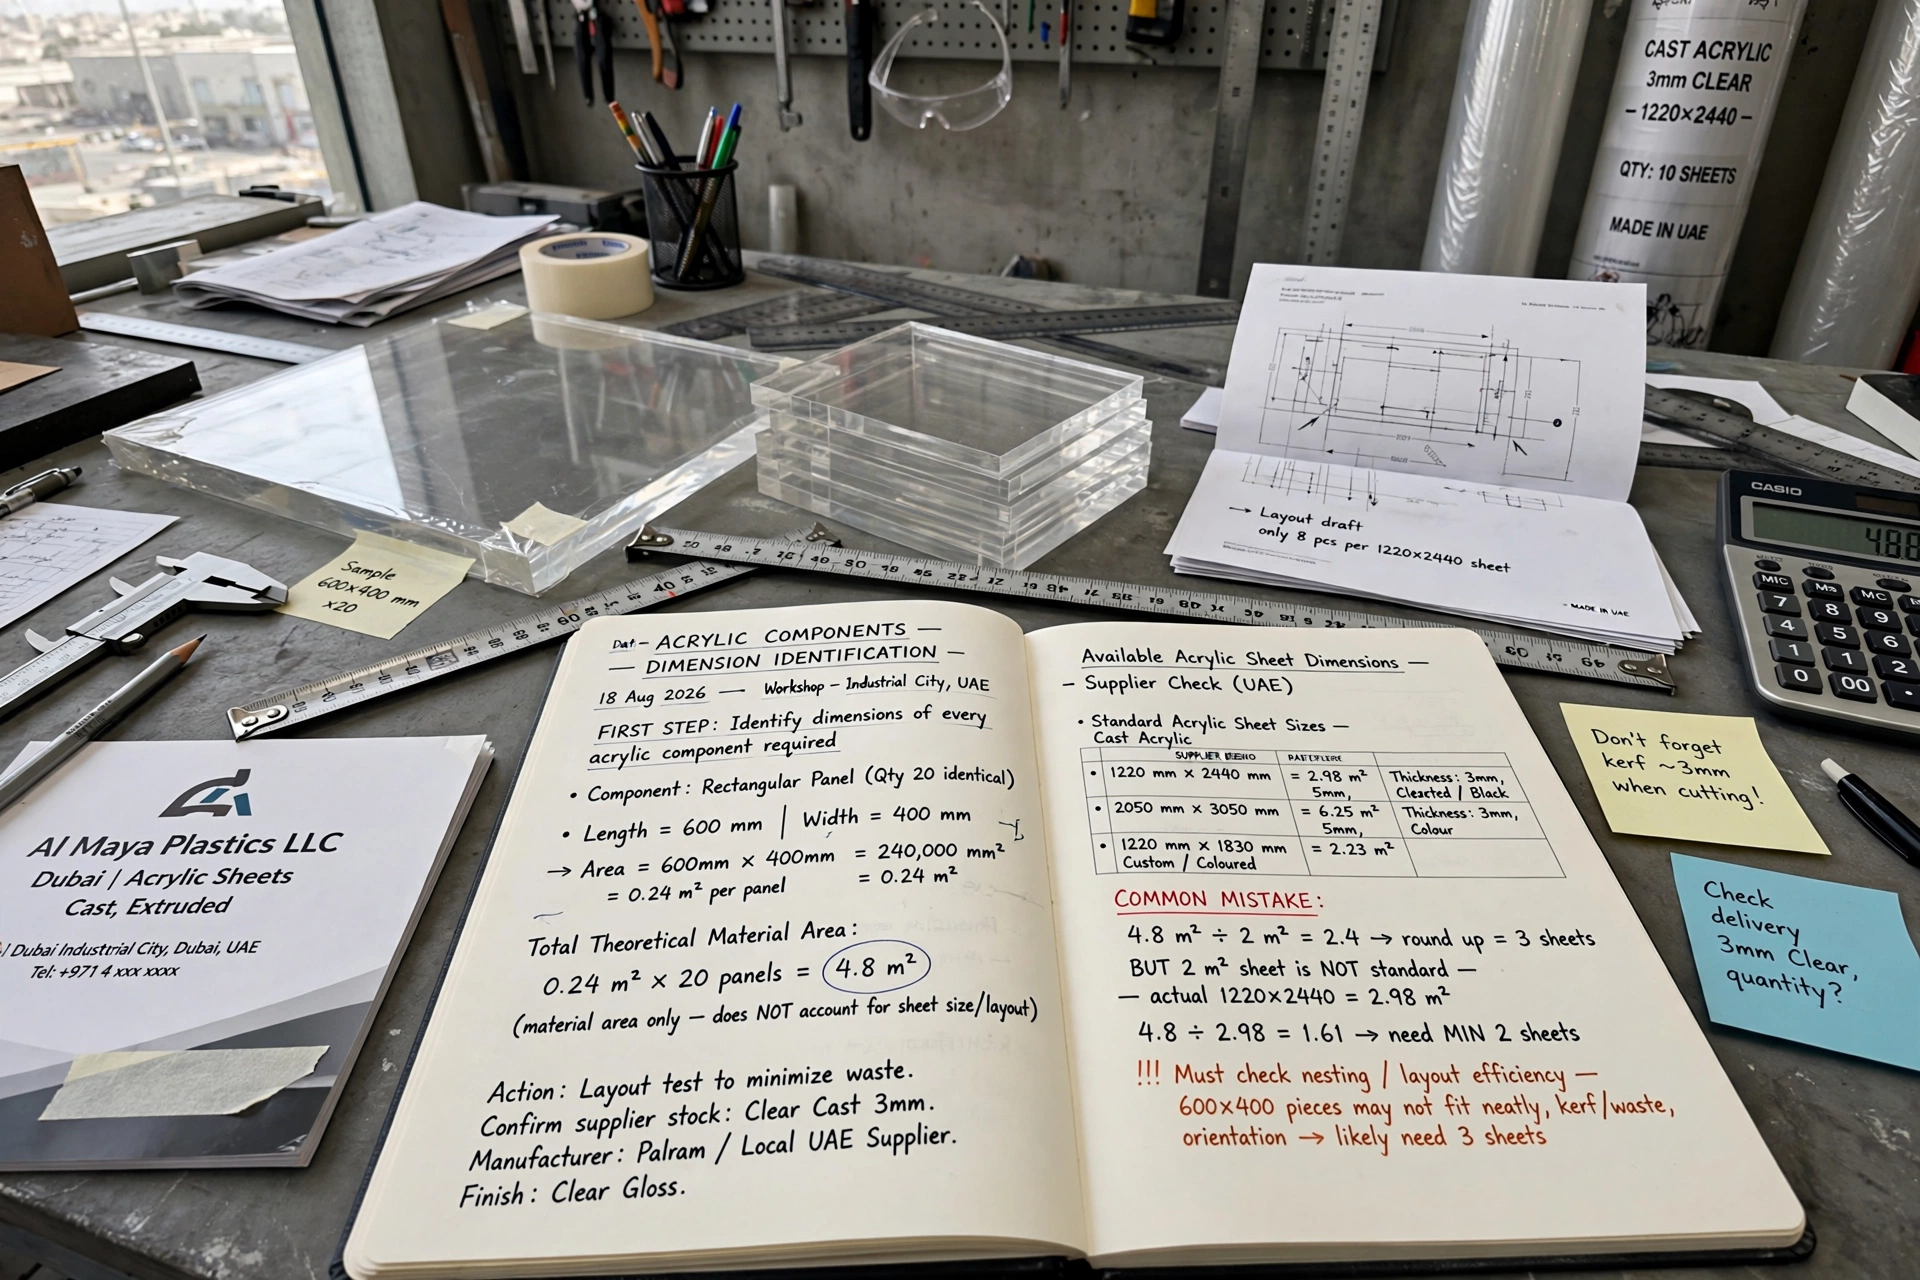 CAST ACRYLIC
3mm CLEAR
- 1220×2440 -
QTY: 10 SHEETS
MADE IN UAE
→ Layout draft
only 8 pcs per 1220×2440 sheet
- MADE IN UAE
CASIO
488
MIC
M%
MC
7
8
9
4
5
6
1
1
2
0
00
Sample
600×400 mm
×20
Al Maya Plastics LLC
Dubai | Acrylic Sheets
Cast, Extruded
Dubai Industtrial City, Dubai, UAE
Tel: +971 4 xxx xxxx
Dat — ACRYLIC COMPONENTS —
— DIMENSION IDENTIFICATION —
18 Aug 2026 — Workshop – Industrial City, UAE
FIRST STEP: Identify dimensions of every
acrylic component required
• Component: Rectangular Panel (Qty 20 identical)
• Length = 600 mm | Width = 400 mm
→ Area = 600mm × 400mm = 240,000 mm²
= 0.24 m² per panel = 0.24 m²
Total Theoretical Material Area:
0.24 m² × 20 panels = 4.8 m²
(material area only — does NOT account for sheet size/layout)
Action: Layout test to minimize waste.
Confirm supplier stock: Clear Cast 3mm.
Manufacturer: Palram / Local UAE Supplier.
Finish: Clear Gloss.
Available Acrylic Sheet Dimensions —
– Supplier Check (UAE)
• Standard Acrylic Sheet Sizes —
Cast Acrylic
SUPPLIER
• 1220 mm × 2440 mm = 2.98 m² Thickness: 3mm,
5mm, Clearted / Black
• 2050 mm × 3050 mm = 6.25 m² Thickness: 3mm,
5mm, Colour
• 1220 mm × 1830 mm = 2.23 m²
Custom / Coloured
COMMON MISTAKE:
4.8 m² ÷ 2 m² = 2.4 → round up = 3 sheets
BUT 2 m² sheet is NOT standard —
— actual 1220×2440 = 2.98 m²
4.8 ÷ 2.98 = 1.61 → need MIN 2 sheets
!!! Must check nesting / layout efficiency —
600×400 pieces may not fit neatly, kerf/waste,
orientation → likely need 3 sheets
Don't forget
kerf ~3mm
when cutting!
Check
delivery
3mm Clear,
quantity?